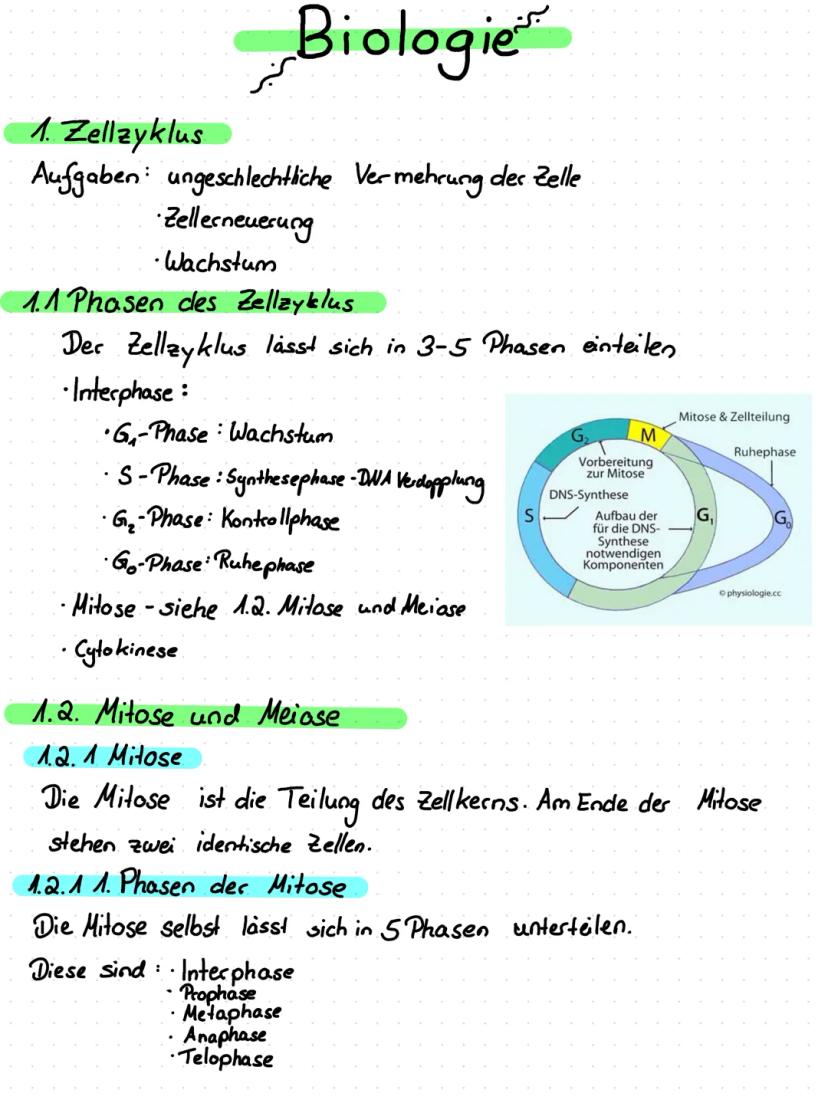 Biologie
1. Zellzyklus
Aufgaben: ungeschlechtliche Vermehrung der Zelle
· Zellerneuerung
· Wachstum
1.1 Phasen des Zellzyklus
Der Zellzyklus lässt sich in 3-5 Phasen einteilen
· Interphase:
· G₁-Phase: Wachstum
· S-Phase: Synthesephase - DNA Verdopplung
· G₂-Phase: Kontrollphase
· G₀-Phase: Ruhephase
· Mitose - siehe 1.2. Mitose und Meiose
· Cytokinese
Mitose & Zellteilung
G₂
M
Ruhephase
Vorbereitung
zur Mitose
DNS-Synthese
S
Aufbau der
für die DNS-
Synthese
notwendigen
Komponenten
G₁
G₀
© physiologie.cc
1.2. Mitose und Meiose
1.2.1 Mitose
Die Mitose ist die Teilung des Zellkerns. Am Ende der Mitose
stehen zwei identische Zellen.
1.2.1 1. Phasen der Mitose
Die Mitose selbst lässt sich in 5 Phasen unterteilen.
Diese sind: · Interphase
· Prophase
· Metaphase
· Anaphase
· Telophase